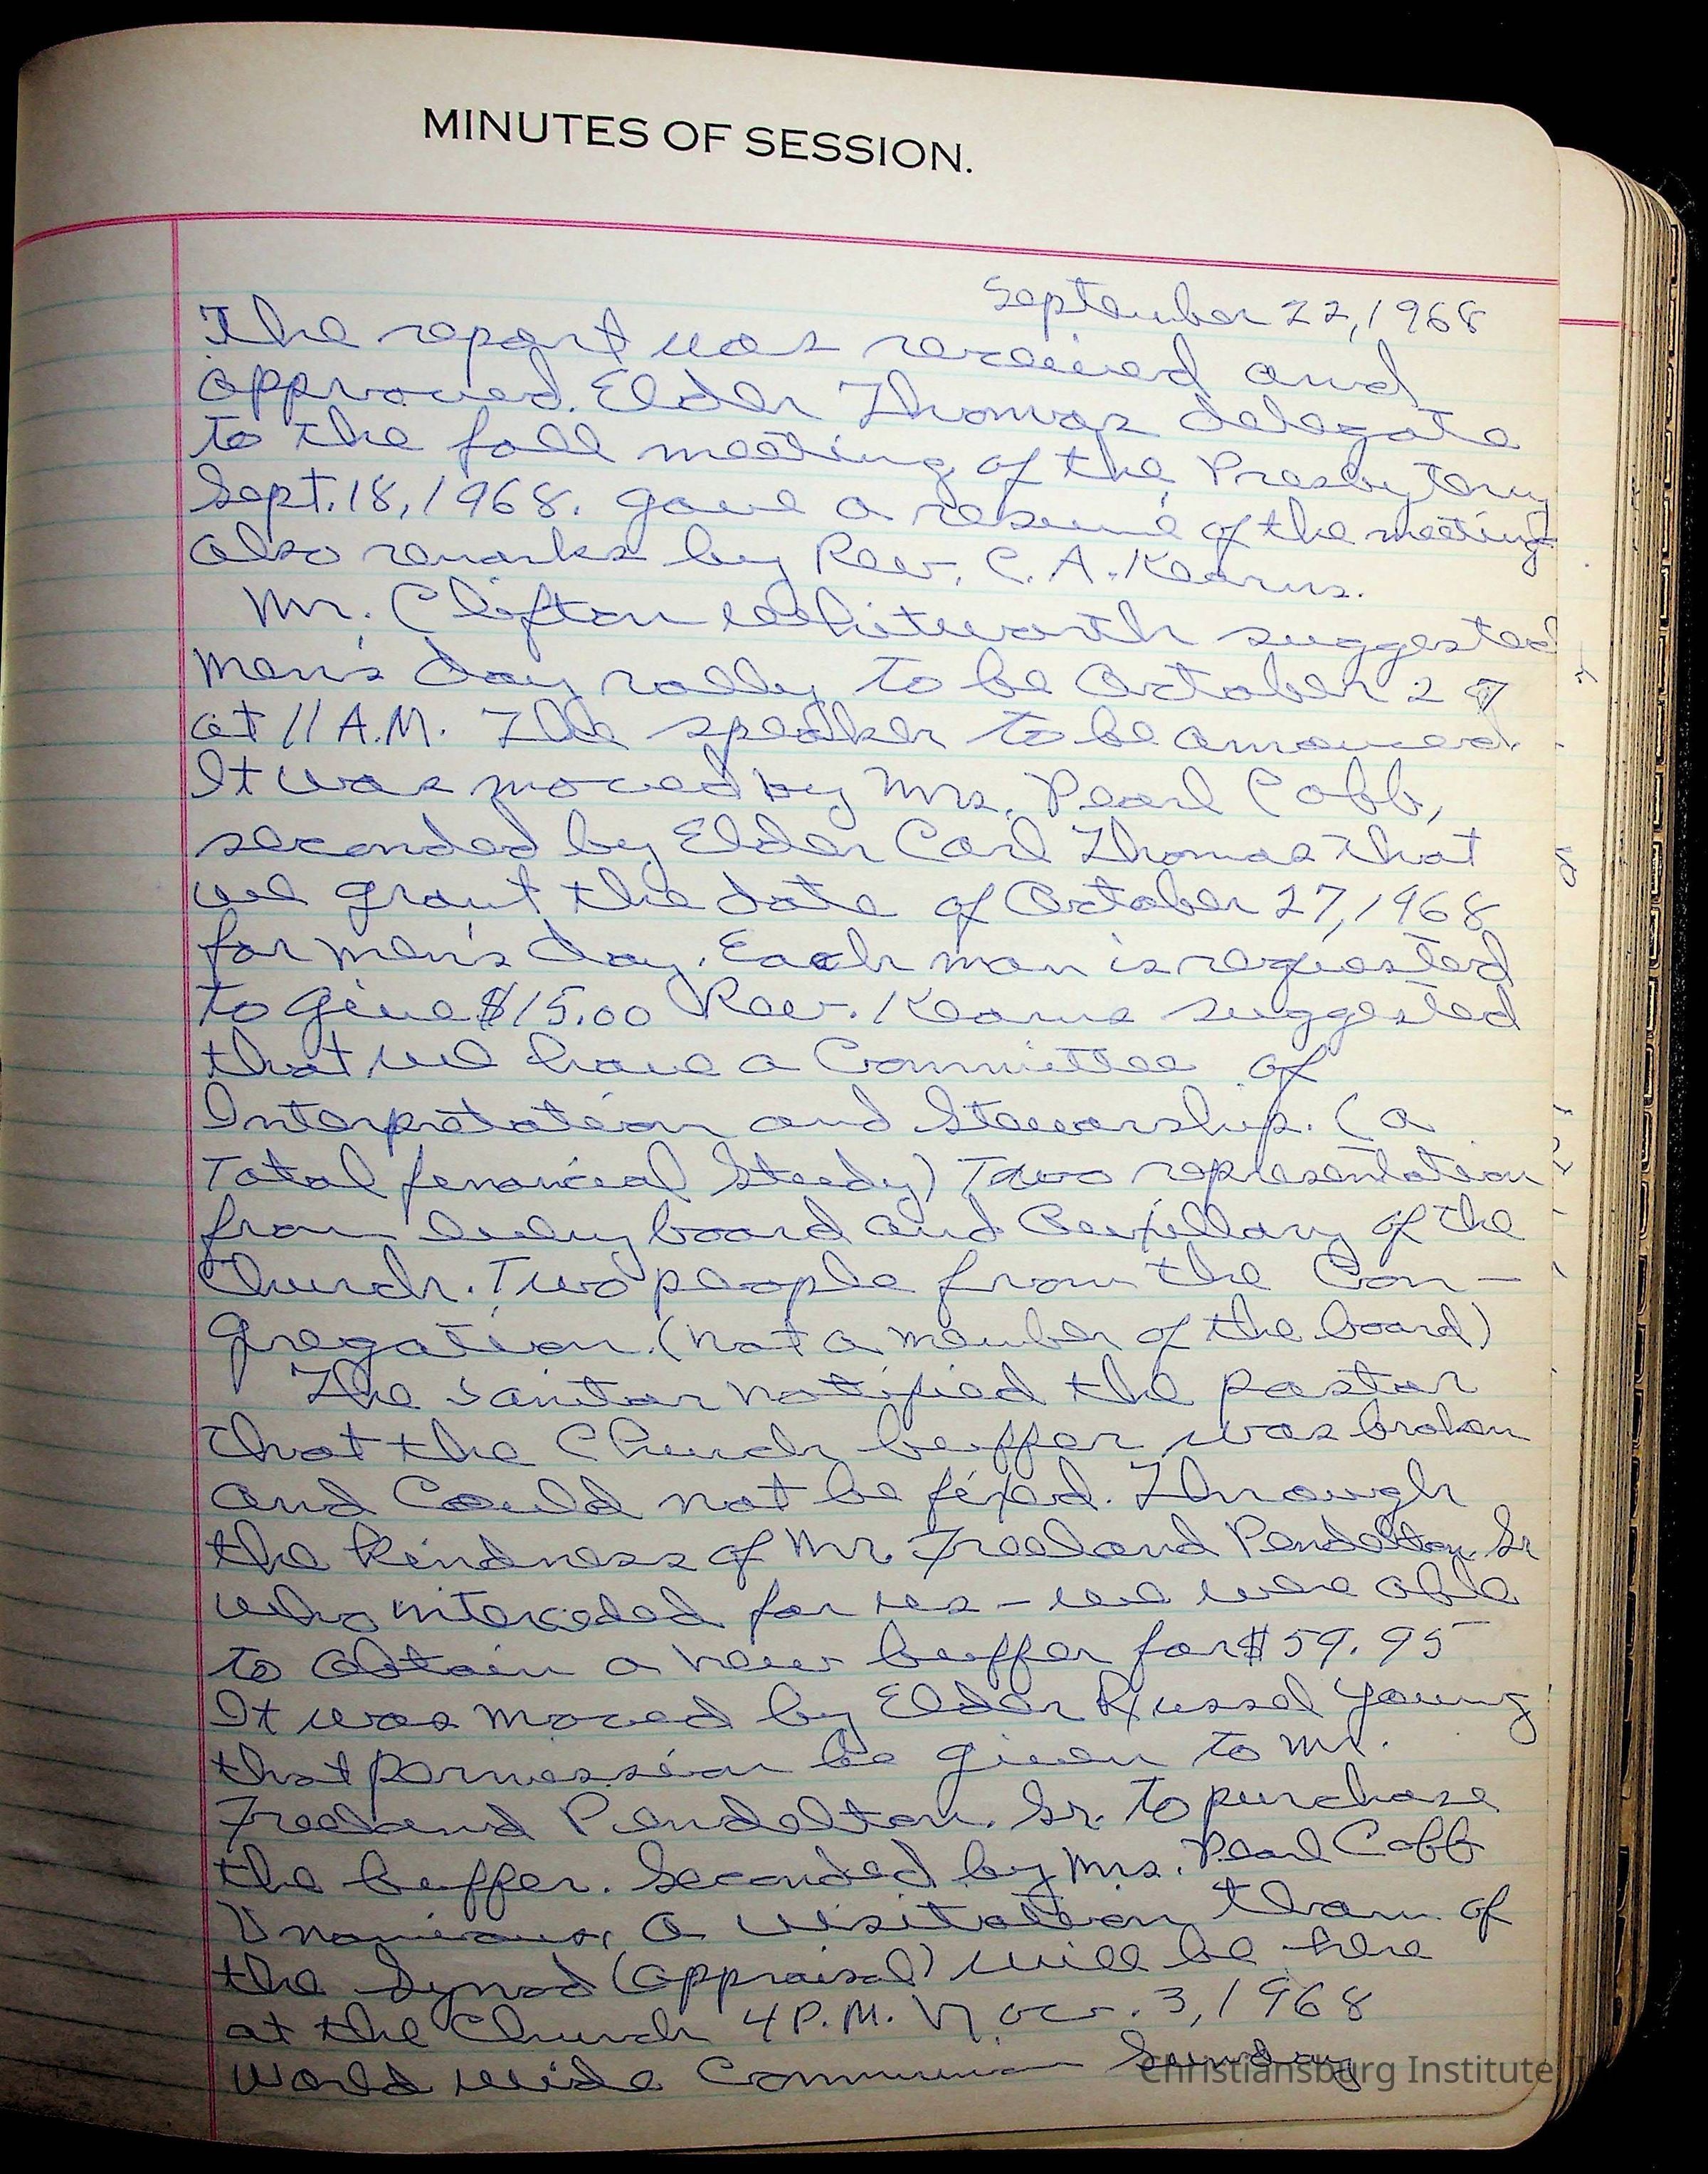 MINUTES OF SESSION.
September 22, 1968
The report was received and
approved. Elder Thomas delegate
to the fall meeting of the Presbytery
Sept. 18, 1968. gave a resume of the meeting
also remarks by Rev. C. A. Kearns.
Mr. Clifton Whitworth suggested
men's day rally to be October 27
at 11 A.M. The speaker to be announced.
It was moved by Mrs. Pearl Cobb,
seconded by Elder Carl Thomas that
we grant the date of October 27, 1968
for men's day. Each man is requested
to give $15.00 Rev. Kearns suggested
that we have a Committee of
Interpretation and Stewarship. (a
Total financial Study) Two representation
from every board and Auxillary of the
Church. Two people from the Con-
gregation. (not a member of the board)
The Janitor notified the pastor
that the Church buffer was broken
and Could not be fixed. Through
the kindness of Mr. Freeland Pendelton, Sr
who interceded for us - we were able
to obtain a new buffer for $59.95
It was moved by Elder Russel Young
that permission be given to Mr.
Freeland Pendelton. Sr. to purchase
the buffer. Seconded by Mrs. Pearl Cobb
a visitation of
the Synod (appraisal) will be here
at the Church 4 P.M. Nov. 3, 1968
World wide Communion Sunday
Christiansburg Institute